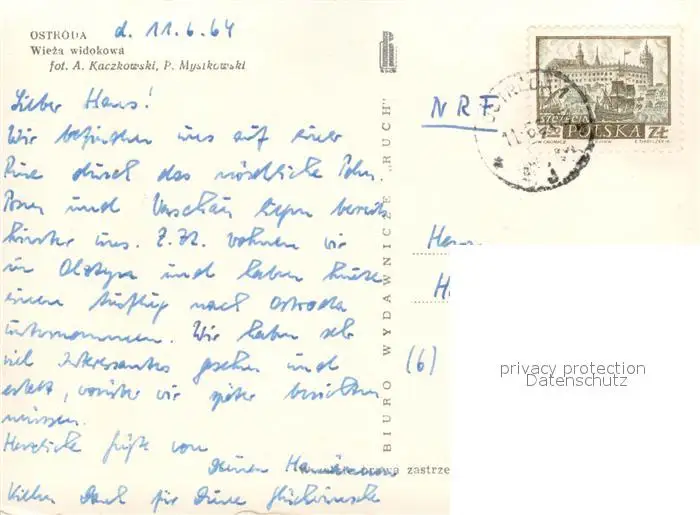 OSTRÓDA d. 11.6.64
Wieża widokowa
fot. A. Kaczkowski, P. Mystkowski
Lieber Hans!
Wir befinden uns auf einer
Reise durch das nördliche Polen.
Posen und Warschau liegen bereits
hinter uns. Z. Zt. wohnen wir
in Olsztyn und haben heute
einen Ausflug nach Ostroda
unternommen. Wir haben sehr
viel Interessantes gesehen und
erlebt, worüber wir später berichten
müssen.
Herzliche Grüße von
Deinen
Vielen Dank für Deine Glückwünsche
BIURO WYDAWNICZE „RUCH"
prawa zastrze
(6)
NRF
Herrn
H
OSTRÓDA
11.6.64
SZCZECIN
POLSKA ZŁ
privacy protection
Datenschutz